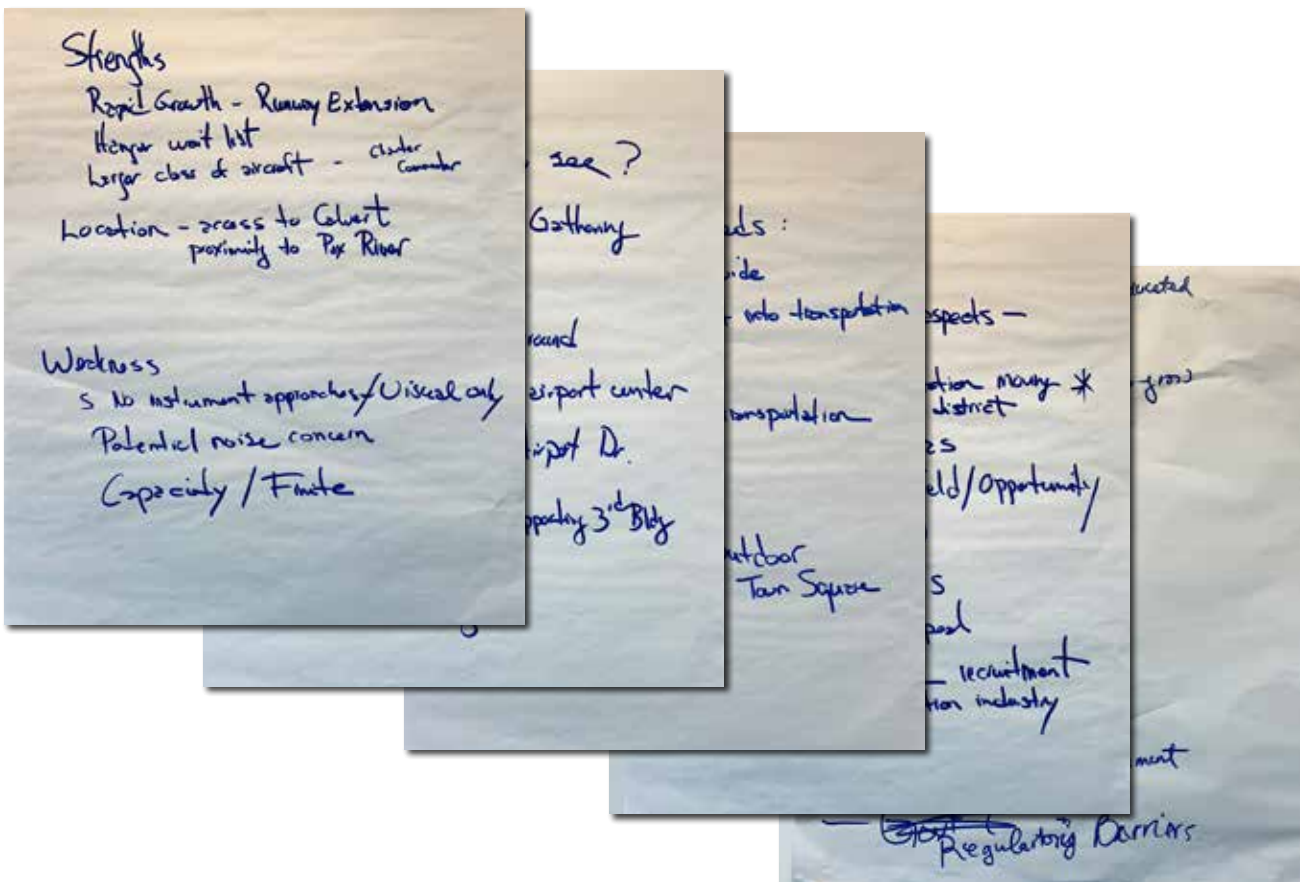 Strengths
Rapid Growth - Runway Extension
Hangar wait list
Larger class of aircraft - Charter
Commuter
Location - access to Calvert
proximity to Pax River
Weakness
S No instrument approaches/Visual only
Potential noise concern
Capacity / Finite
see?
Gathering
round
airport center
irport Dr.
pporting 3rd Bldg
eds:
ide
into transportation
ansportation
utdoor
Town Square
spects —
tion moving *
district
es
eld/Opportunity
s
pool
— recruitment
tion industry
ucated
grow
ment
— Regulatory Barriers